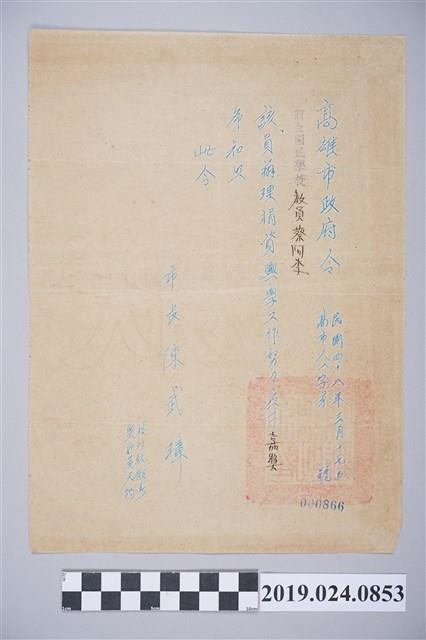 高雄市政府令
民國四十八年三月十九日
高市人人字第 號
000866
前金國民學校 教員蔡阿李
該員辦理捐資興學工作努力應予嘉獎
希知照
此令
市長 陳武璋
1cm
5cm
10cm
2019.024.0853